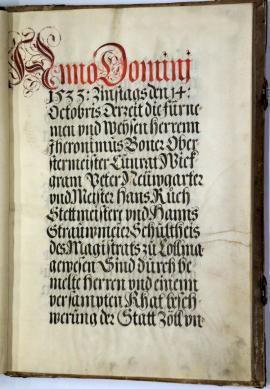 Anno Domini
1533: Zinstags den 14:
Octobris Als Zeit die fürne-
men und Weysen herrenn
Jheronimus Boner Ober-
stermeister Cünrat Wick-
gram Peter Neüwgarter
und Meister Hans Rüch
Stettmeistere und Hanns
Strauwmeier Schultheis
des Magistrats zü Collma-
gewesen Sind durch be
melte herren und einenn
versampten Rhat besch
werüng der Statt Zöll un